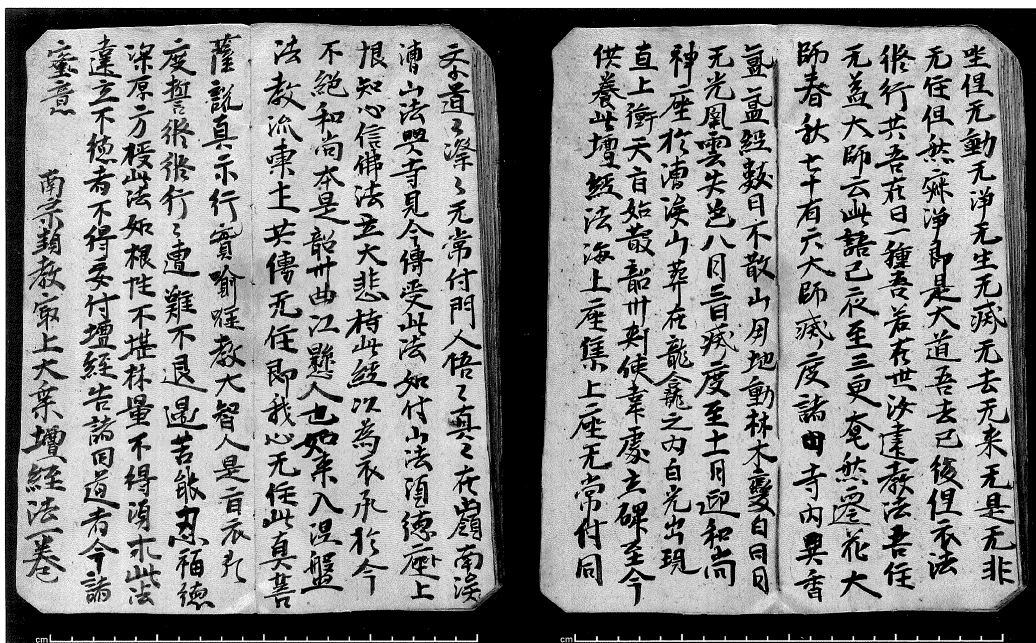 坐但无動无浄无生无滅无去无来无是无非
无住但然寂浄即是大道吾去已後但衣法
修行共吾在日一種吾若在世汝違教法吾住
无益大師云此語已夜至三更奄然遷花大
師春秋七十有六大師滅度諸日寺内異香
氳氳經數日不散山用地動林木變白日月
无光風雲失色八月三日滅度至十一月迎和尚
神座於漕溪山葬在龍龕之内白光出現
直上衝天三日始散韶州刾使韋處立碑至今
供養此壇經法海上座集上座无常付同
学道漈道漈无常付門人悟真悟真在嶺南溪
漕山法興寺見今傳受此法如付山法須德座上
根知心信佛法立大悲持此經以為衣承於今
不絶和尚本是韶州曲江懸人也如来入涅盤
法教流東土共傳无住即我心无住此真菩
薩說真示行實喻唯教大智人是旨衣凢
度誓修修行行遭難不退遇苦能忍福德
深厚方授此法如根性不堪林量不得須求此法
違立不德者不得妄付壇經告諸同道者令諸
蜜意
南宗頓教最上大乗壇經法一卷